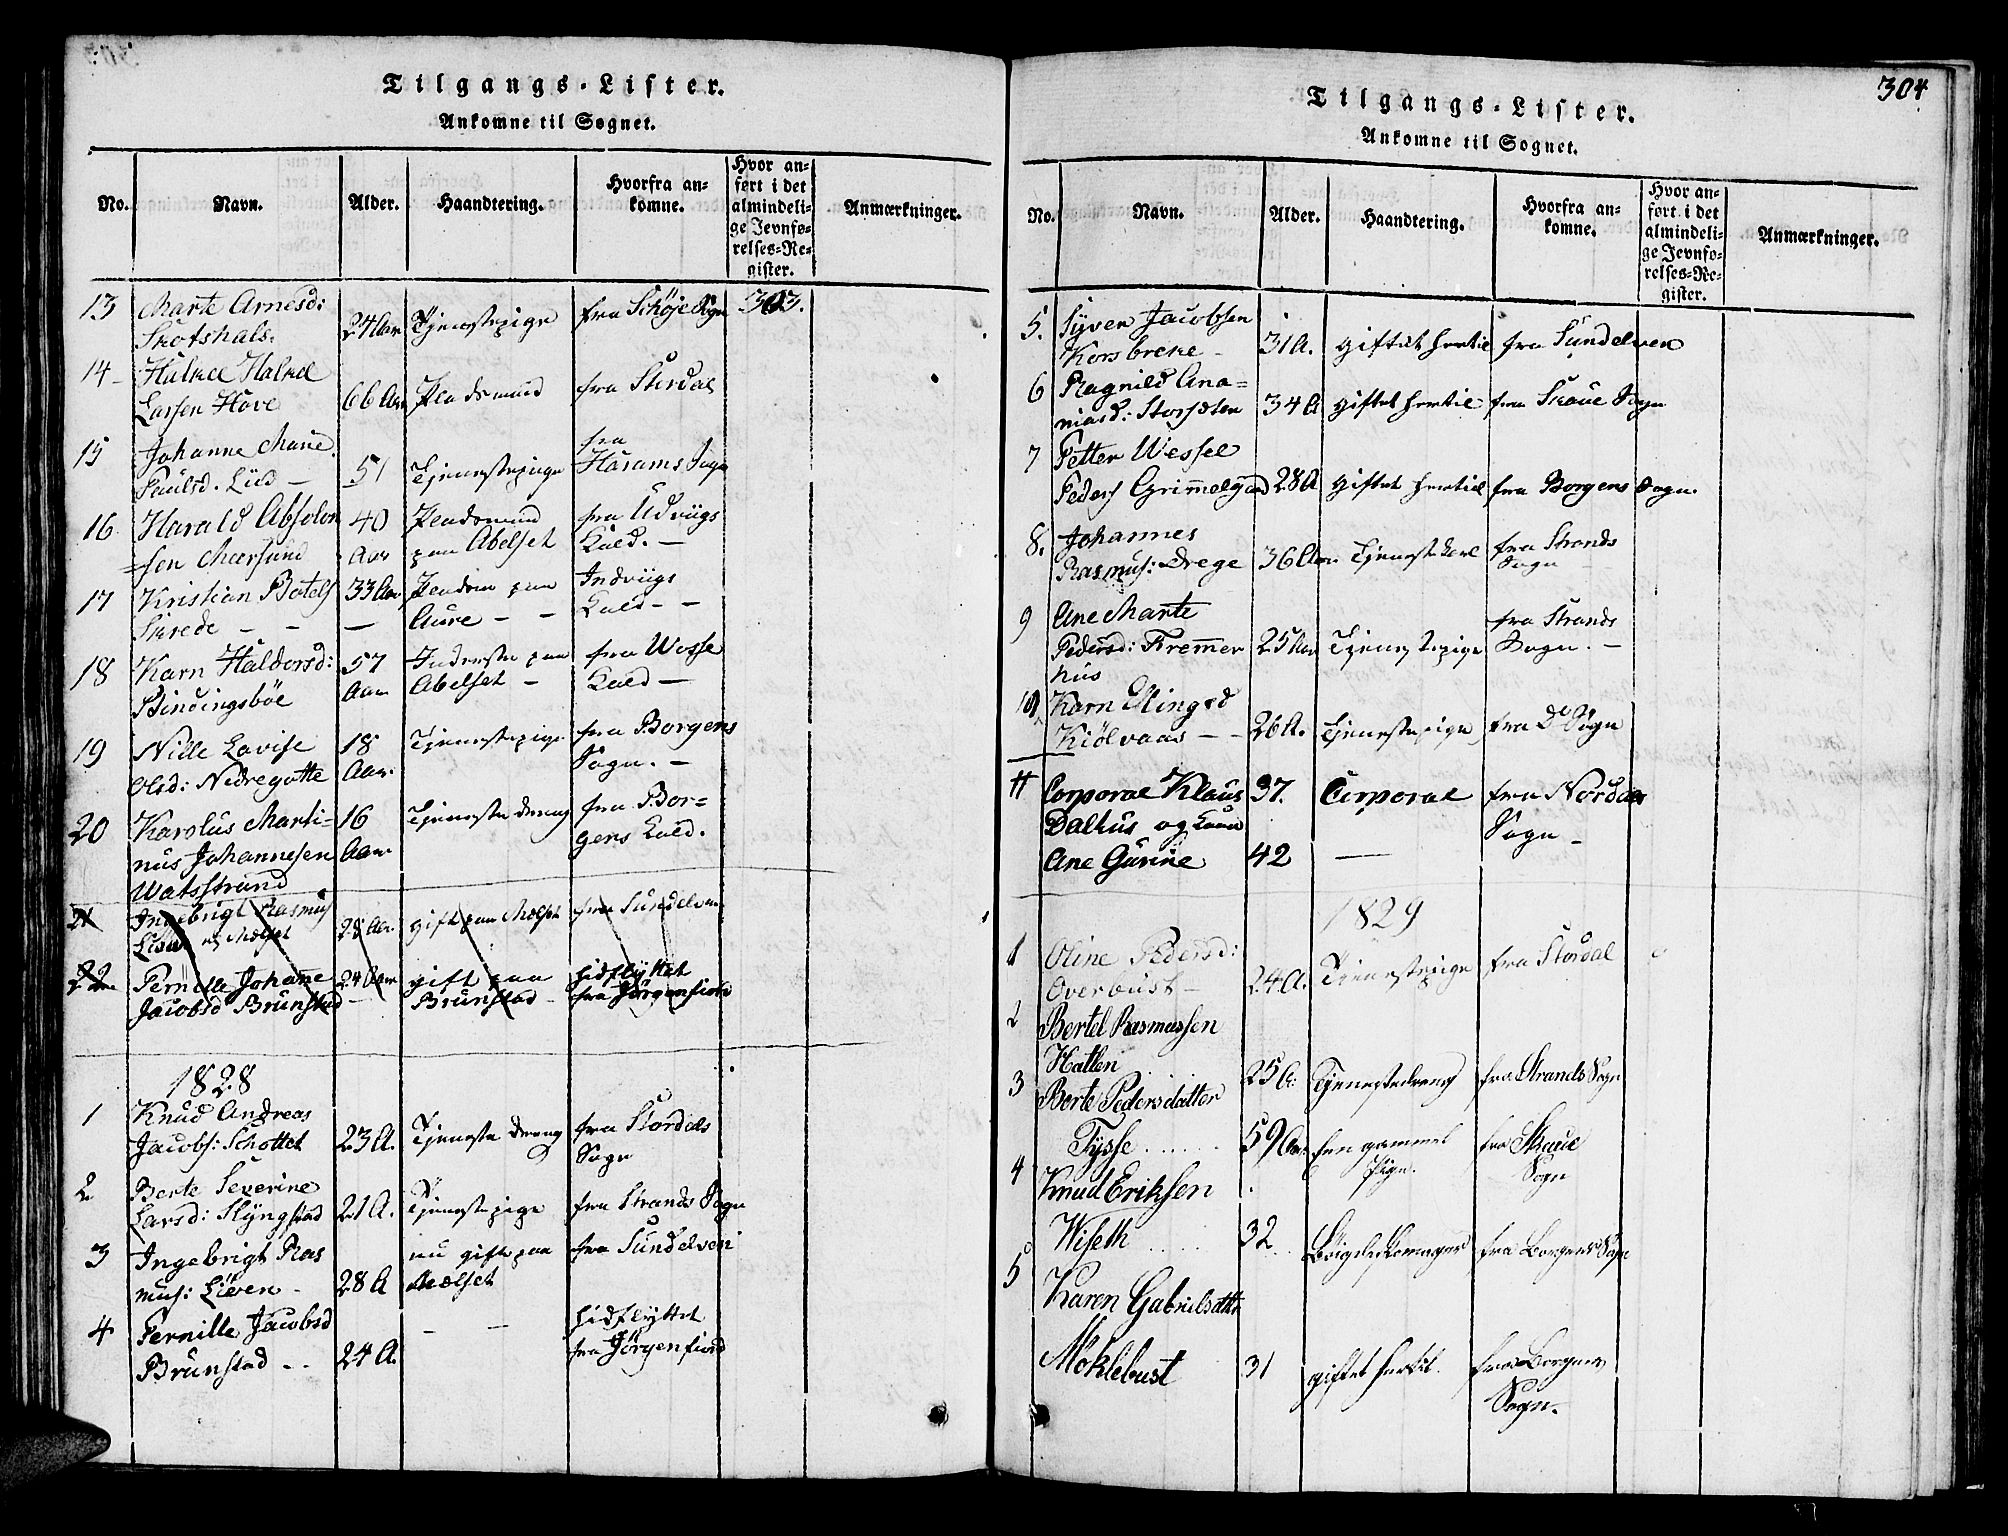 Tilgangs-Lister.
Ankomne til Sognet.
No. Navn. Alder. Haandtering. Hvorfra ankomne. Hvor anført i det almindelige Jevnførelses-Register. Anmærkninger.
13 Marte Arnesd: Skotshals. 24 Aar Tjenestepige fra Skøje Sogn 303.
14 Halvd Larsen Hove 66 Aar Pladsmand fra Stordal
15 Johanne Marie Paulsd. Lüd – 51 Tjenestepige fra Harams Sogn
16 Harald Absolon=sen Marsund 40 Aar Pladsmand paa Abelset fra Udviigs Kald. –
17 Kristian Botels Skrede – – 33 Aar – Pladsm paa Aure – – Indviigs Kald – –
18 Karn Haldorsd: Bindingsböe 57 Aar Inderste paa Abelset – fra Wosse Kald –
19 Nille Lovise Olsd: Nedregotte 18 Aar. Tjenestepige fra Borgens Sogn. –
20 Karolus Martinus Johannesen Watsstrand 16 Aar Tjenestedreng fra Borgens Kald.
21 Ingebrigt Rasmus Liöen og Mælset 28 Aar. gift paa Mælset fra Sundelven
22 Pernille Johane Jacobsd Brunstad – 24 Aar gift paa Brunstad – hidflyttet fra Jörgenfiord
1828
1 Knud Andreas Jacobs: Schottet 23 A. Tjeneste dreng fra Stordals Sogn
2 Berte Severine Larsd: Slyngstad 21 A. Tjenestepige fra Strands Sogn
3 Ingebrigt Rasmus: Liöen – 28 A nu gift paa Mælset fra Sundelven
4 Pernille Jacobsd Brunstad – – 24 A. – – hidflyttet fra Jörgenfiord
304
Tilgangs-Lister.
Ankomne til Sognet.
No. Navn. Alder. Haandtering. Hvorfra ankomne. Hvor anført i det almindelige Jevnførelses-Register. Anmærkninger.
5. Syver Jacobsen Korsbreke – 31 A. giftet hertil fra Sundelven
6 Ragnild Ananiasd: Storsteten 34 A giftet hertil fra Skaue Sogn
7 Petter Wessel Peders Grimelgard 28 A giftet hertil fra Borgens Sogn.
8. Johannes Rasmus: Drege 36 Aar Tjenestekarl fra Strands Sogn –
9 Ane Marte Pedersd: Fremmerhus 25 Aar Tjenestepige fra Strands Sogn. –
10 Karn Mingsd Kiölvaas – – 26 A. Tjenestepige fra Do Sogn
11 Corporal Klaus Dalhus og kone Ane Gurine 37. 42 Corporal – fra Nordals Sogn –
1829
1 Oline Pedersd: Overbust – 24 A. Tjenestepige fra Stordal
2 Bertel Rasmussen Hatlen 25 A: Tjenestedreng fra Strands Sogn
3 Berte Pedersdatter Tysse . . . . . . 59 Aar. en gammel Pige. fra Skaue Sogn
4 Knud Eriksen Wiseth . . . . . 32 fra Borgens Sogn
5 Karen Gabrielsdattr Möklebust 31 giftet hertil. fra Borgens Sogn.